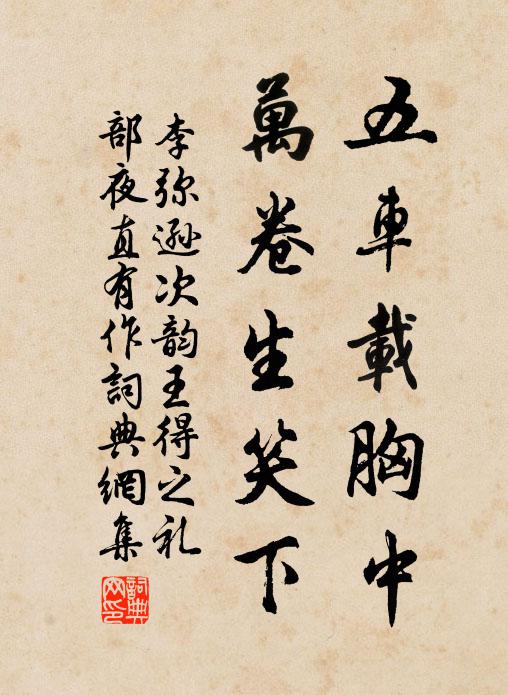 五車載胸中
萬卷生笑下
李弥遜次韵王得之礼
部夜直有作詞典網集
詞典
网印